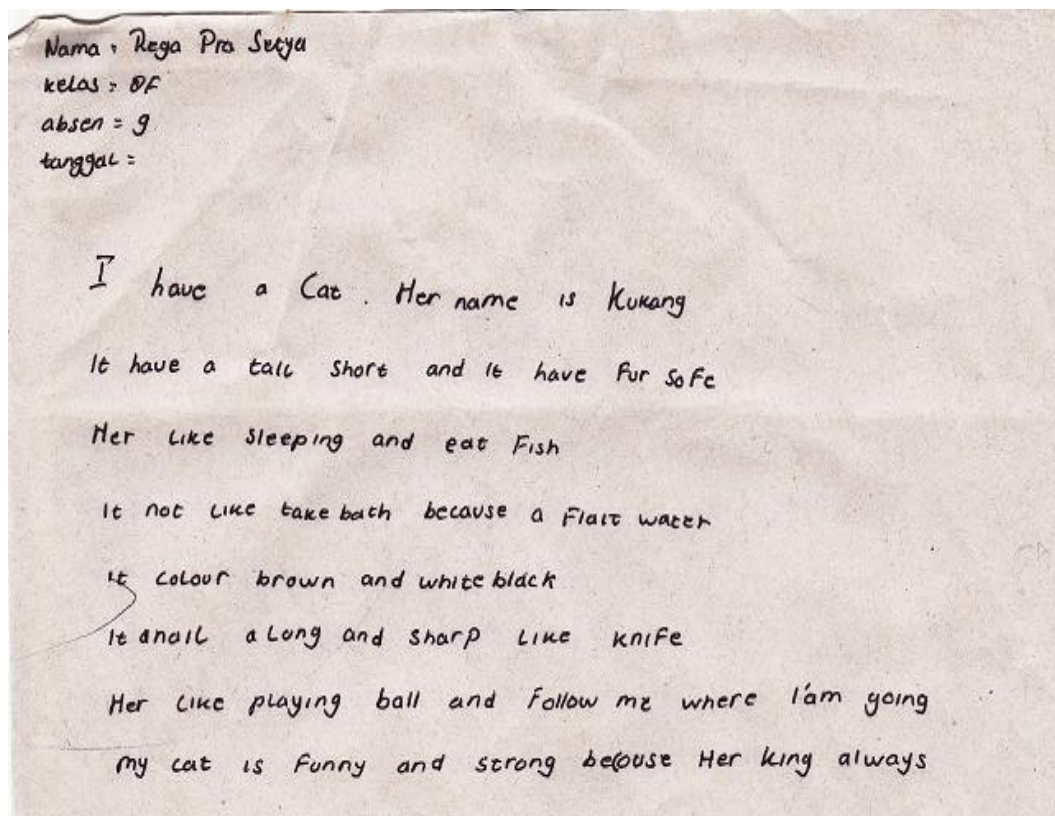 Nama : Rega Pra Setya
kelas : 8F
absen = 9
tanggal =
I have a Cat. Her name is Kukang
It have a tail short and it have fur soft
Her like sleeping and eat Fish
It not like take bath because a Flait water
It colour brown and white black
It anail a long and sharp like knife
Her like playing ball and follow me where I'am going
My cat is funny and strong because Her king always